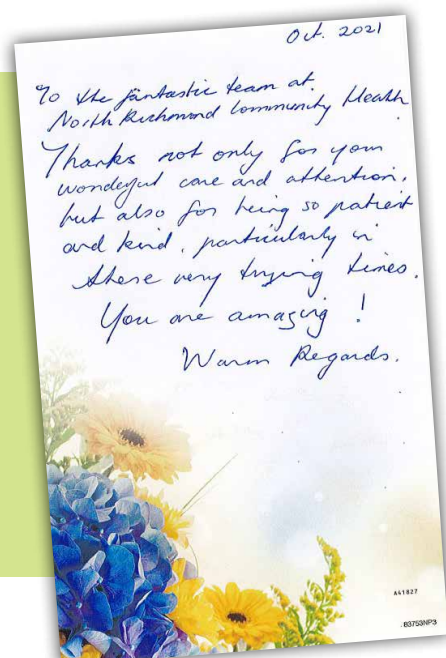 Oct. 2021
To the fantastic team at
North Richmond Community Health.
Thanks not only for your
wonderful care and attention,
but also for being so patient
and kind, particularly in
these very trying times.
You are amazing!
Warm Regards.
A41827
B3753NP3